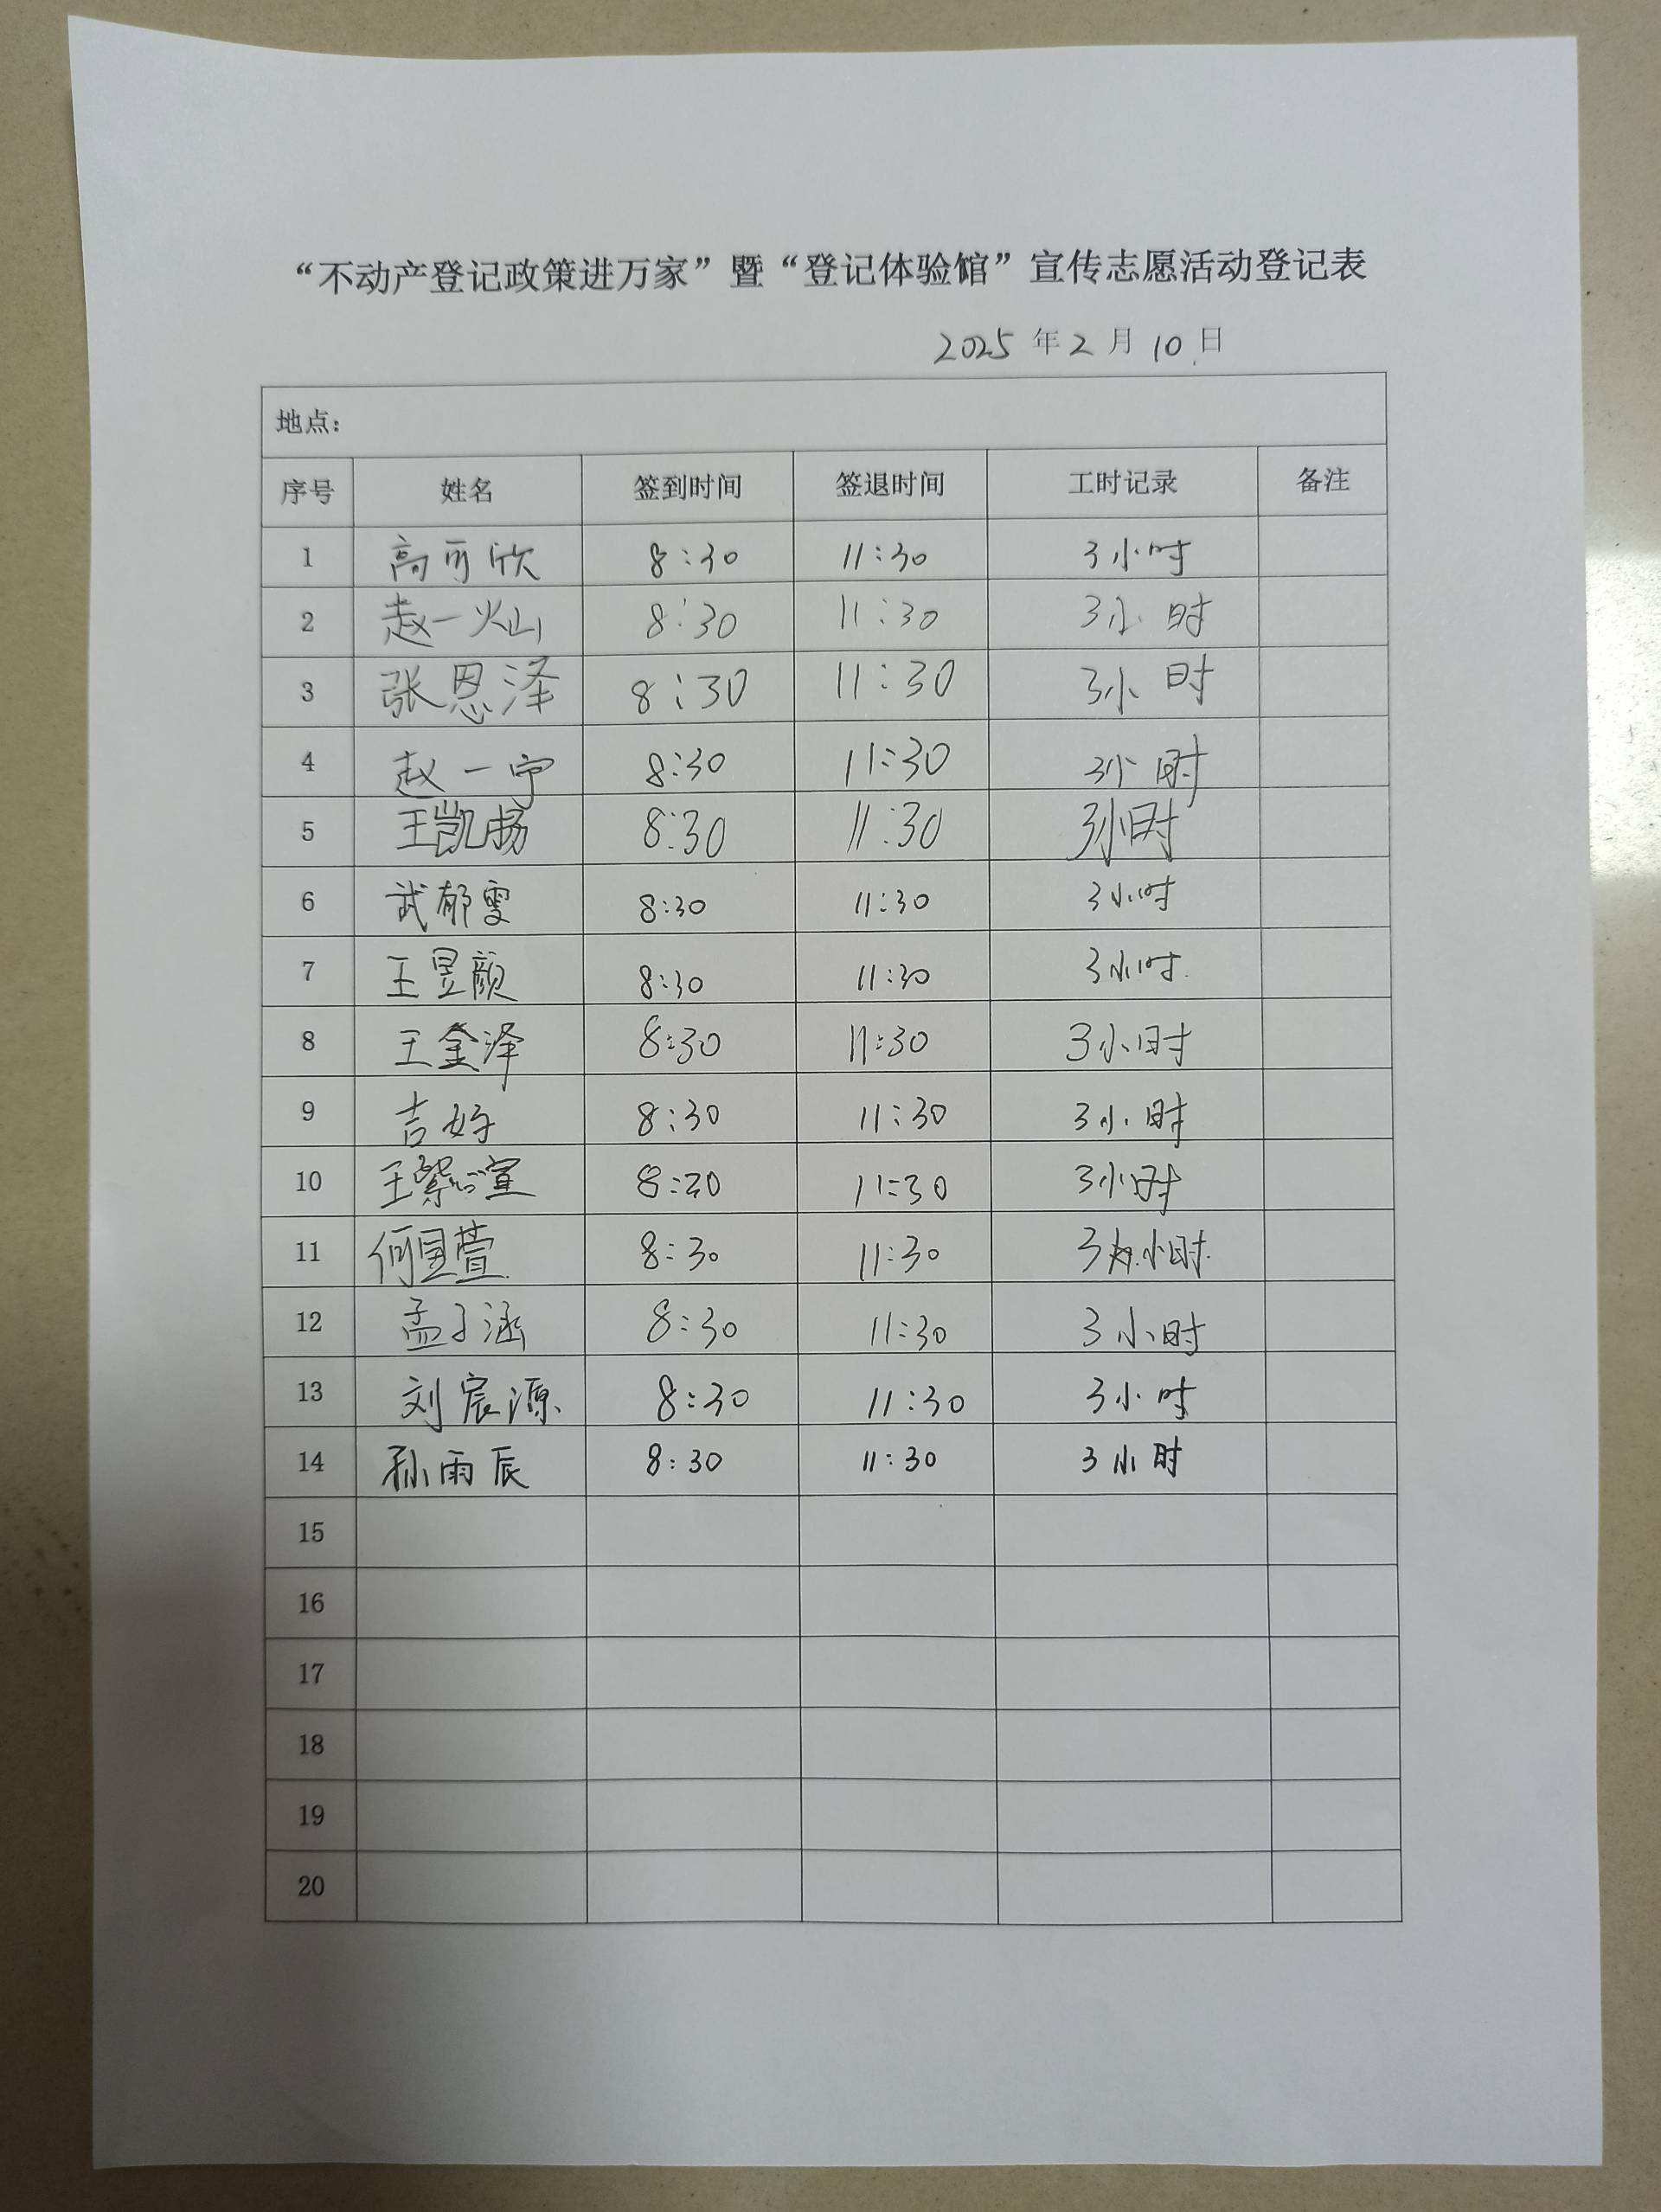 “不动产登记政策进万家”暨“登记体验馆”宣传志愿活动登记表
2025 年 2 月 10 日
地点：
序号 姓名 签到时间 签退时间 工时记录 备注
1 高可欣 8:30 11:30 3小时
2 赵一灿 8:30 11:30 3小时
3 张恩泽 8:30 11:30 3小时
4 赵一宁 8:30 11:30 3小时
5 王凯扬 8:30 11:30 3小时
6 武郁雯 8:30 11:30 3小时
7 王昱颜 8:30 11:30 3小时
8 王金泽 8:30 11:30 3小时
9 吉好 8:30 11:30 3小时
10 王紫瑄 8:30 11:30 3小时
11 何萱 8:30 11:30 3小时
12 孟子涵 8:30 11:30 3小时
13 刘宸源 8:30 11:30 3小时
14 孙雨辰 8:30 11:30 3小时
15
16
17
18
19
20